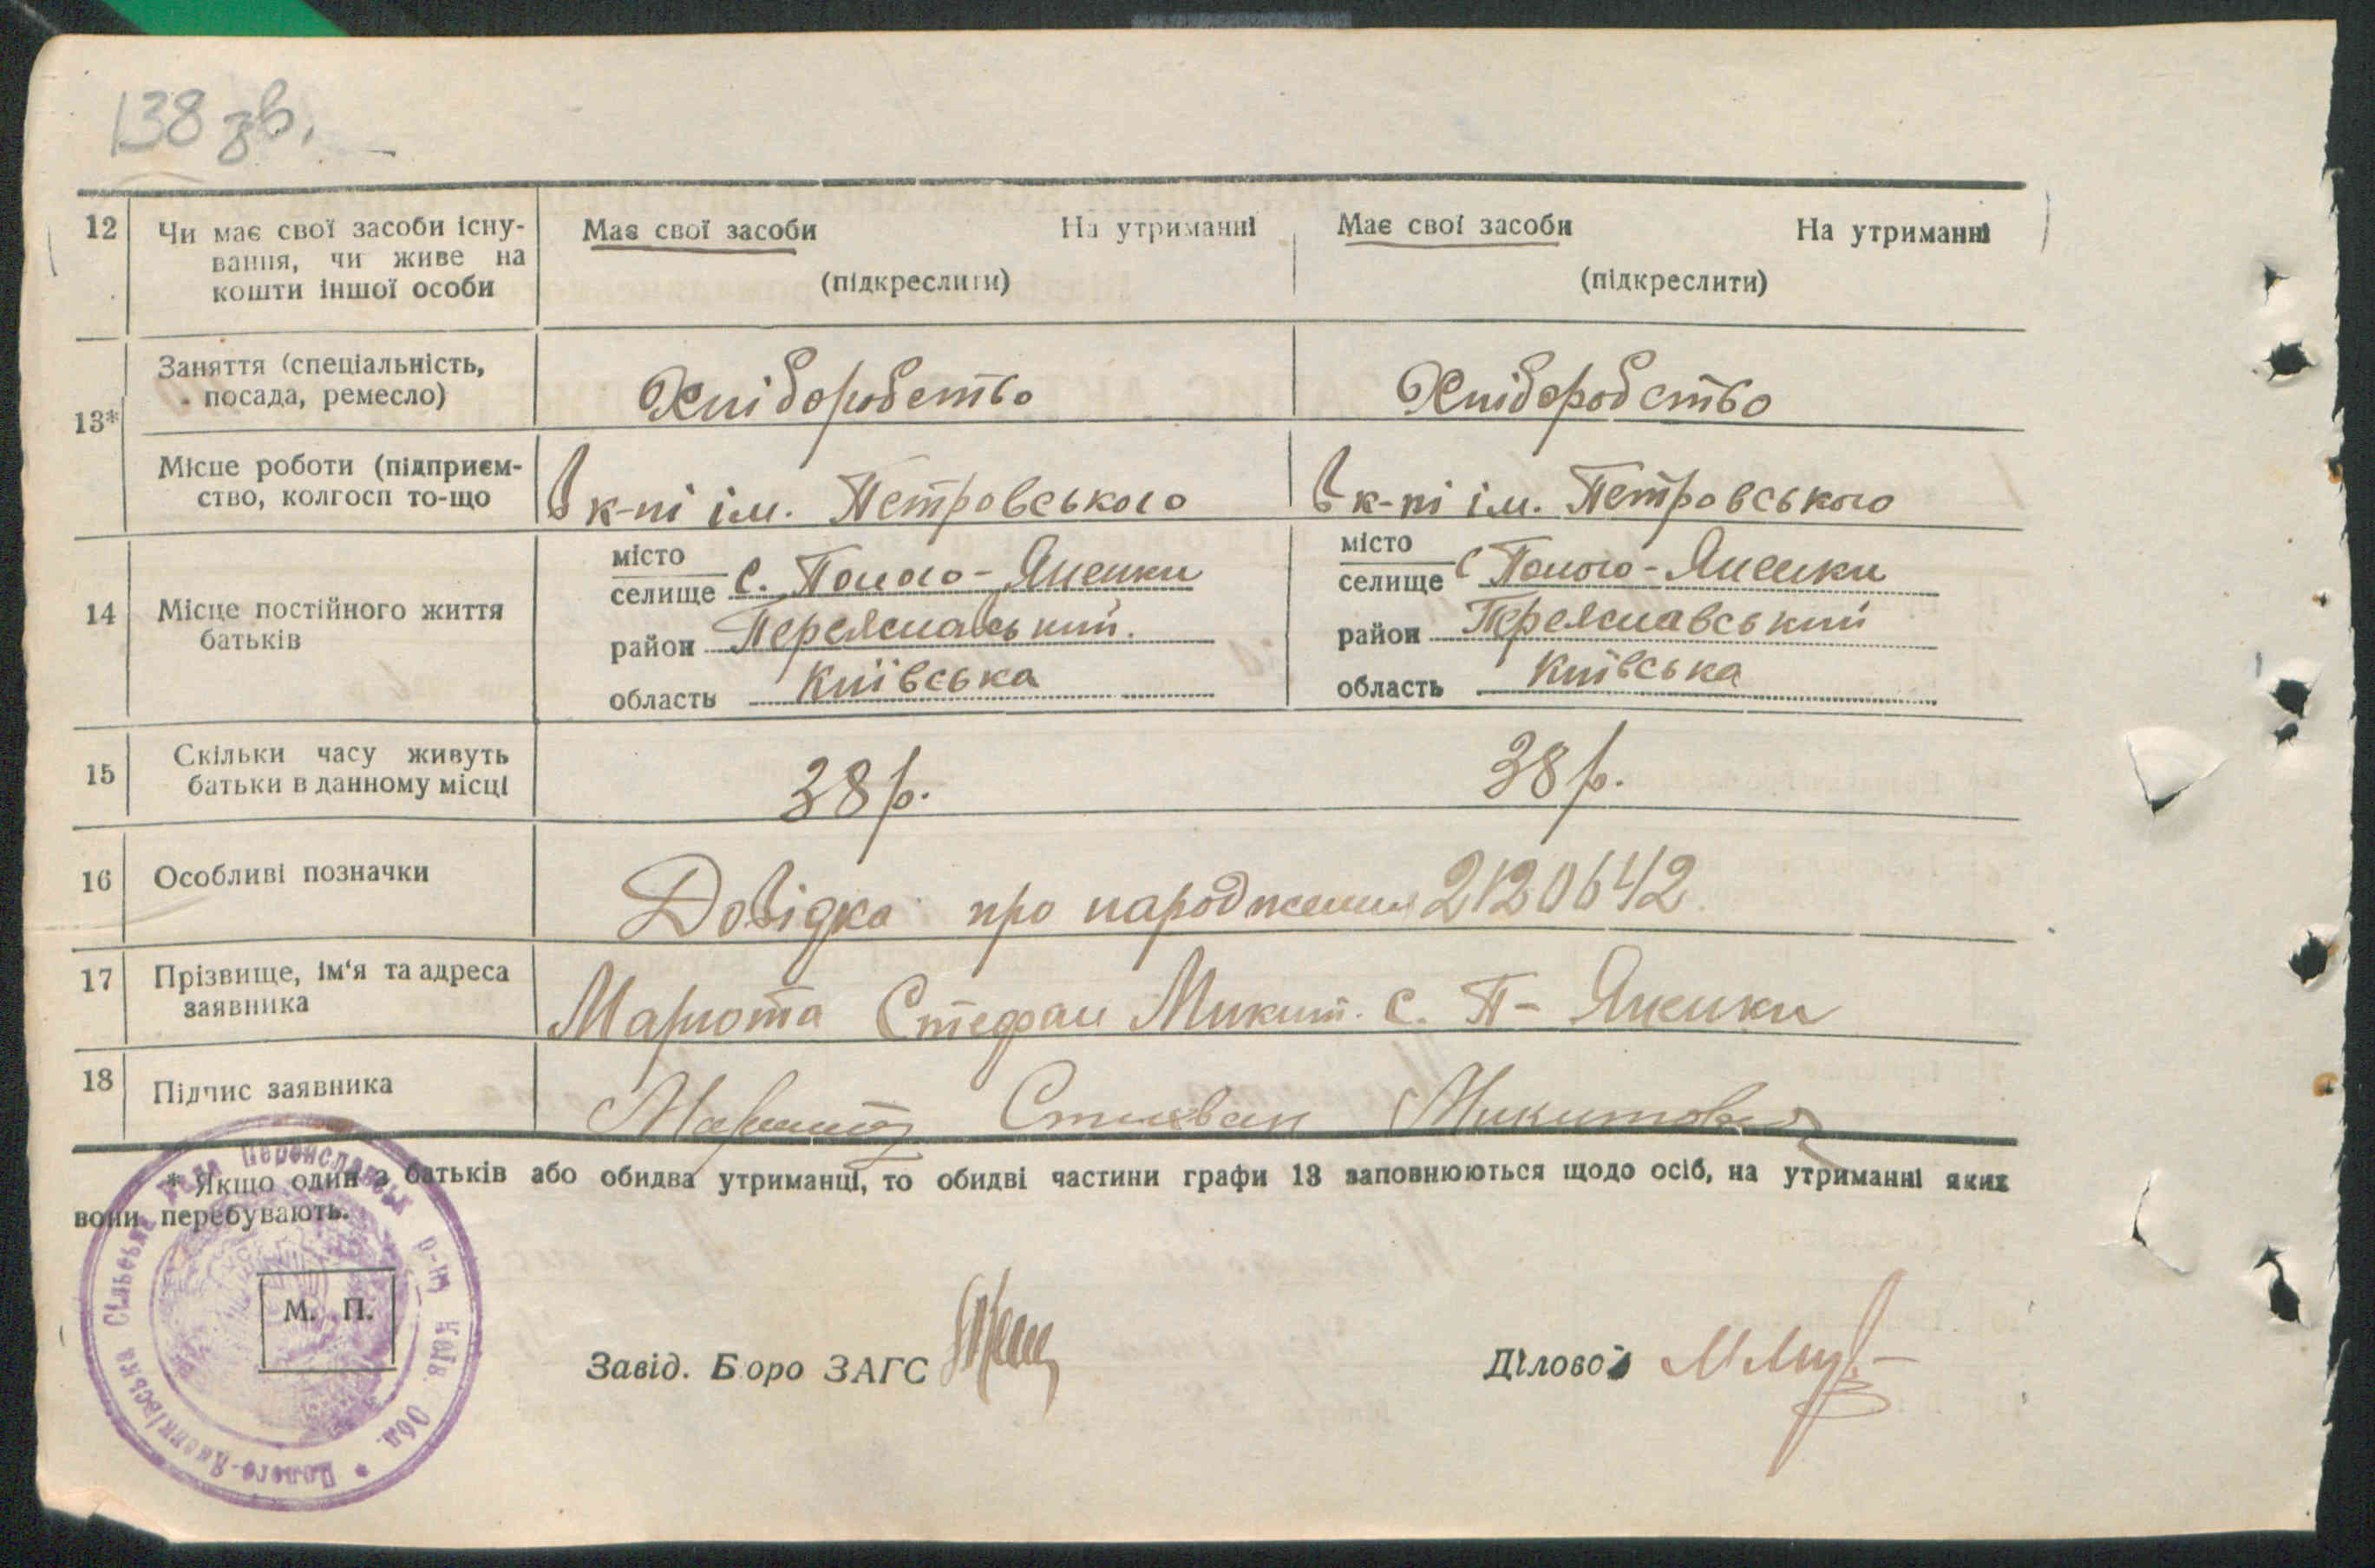 138 зв.
12 Чи має свої засоби існу-
вання, чи живе на
кошти іншої особи
Має свої засоби На утриманні
(підкреслити)
Має свої засоби На утриманні
(підкреслити)
13* Заняття (спеціальність,
посада, ремесло)
Хліборобство
Хліборобство
Місце роботи (підприєм-
ство, колгосп то-що
В к-пі ім. Петровського
В к-пі ім. Петровського
14 Місце постійного життя
батьків
місто
селище с. Полого-Яненки
район Переяславський.
область Київська
місто
селище с Полого-Яненки
район Переяславський
область Київська
15 Скільки часу живуть
батьки в данному місці
38 р.
38 р.
16 Особливі позначки
Довідка про народження 2120642
17 Прізвище, ім'я та адреса
заявника
Марюта Стефан Микит. с. П-Яненки
18 Підпис заявника
Стиеван Микитович
* Якщо один з батьків або обидва утриманці, то обидві частини графи 13 заповнюються щодо осіб, на утриманні яких
вони перебувають.
М. П.
Полого-Яненківська Сільська Рада Переяславськ. р-ну Київ. Обл.
Завід. Бюро ЗАГС
Діловод